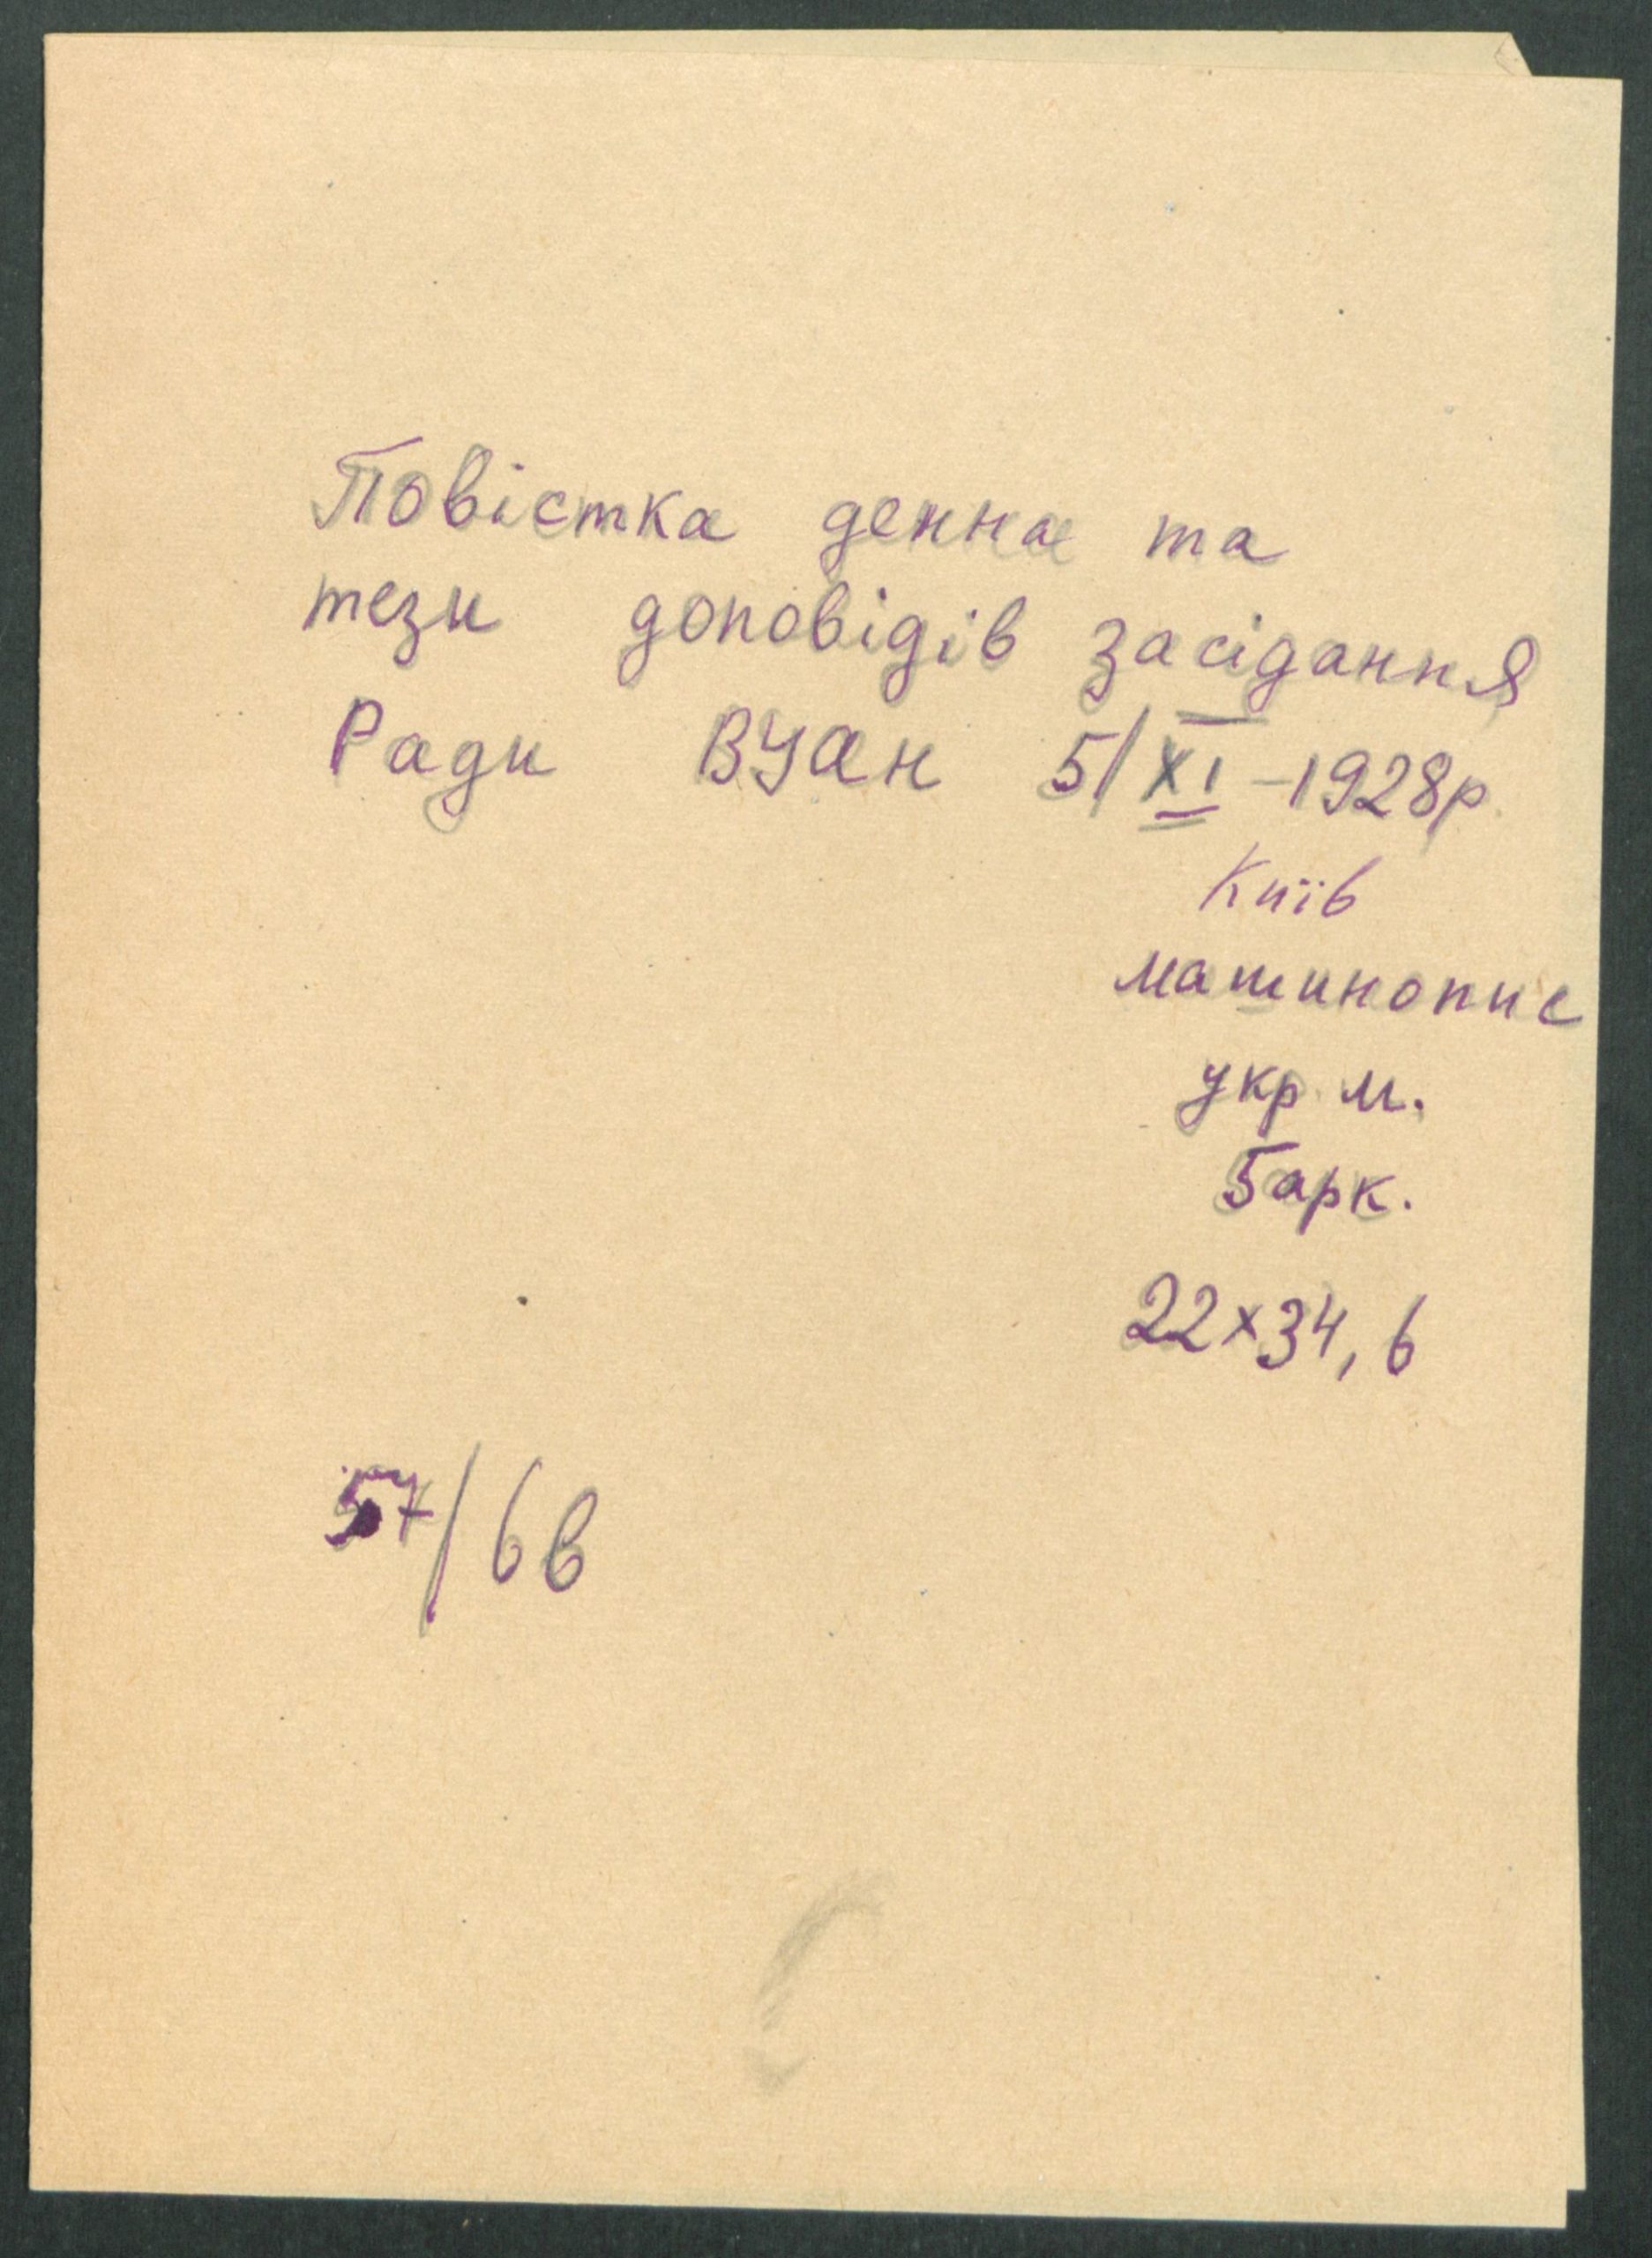 Повістка денна та
тези доповідів засідання
Ради ВУАН 5/XI-1928р
Київ
машинопис
укр м.
5арк.
22×34,6
57/6в